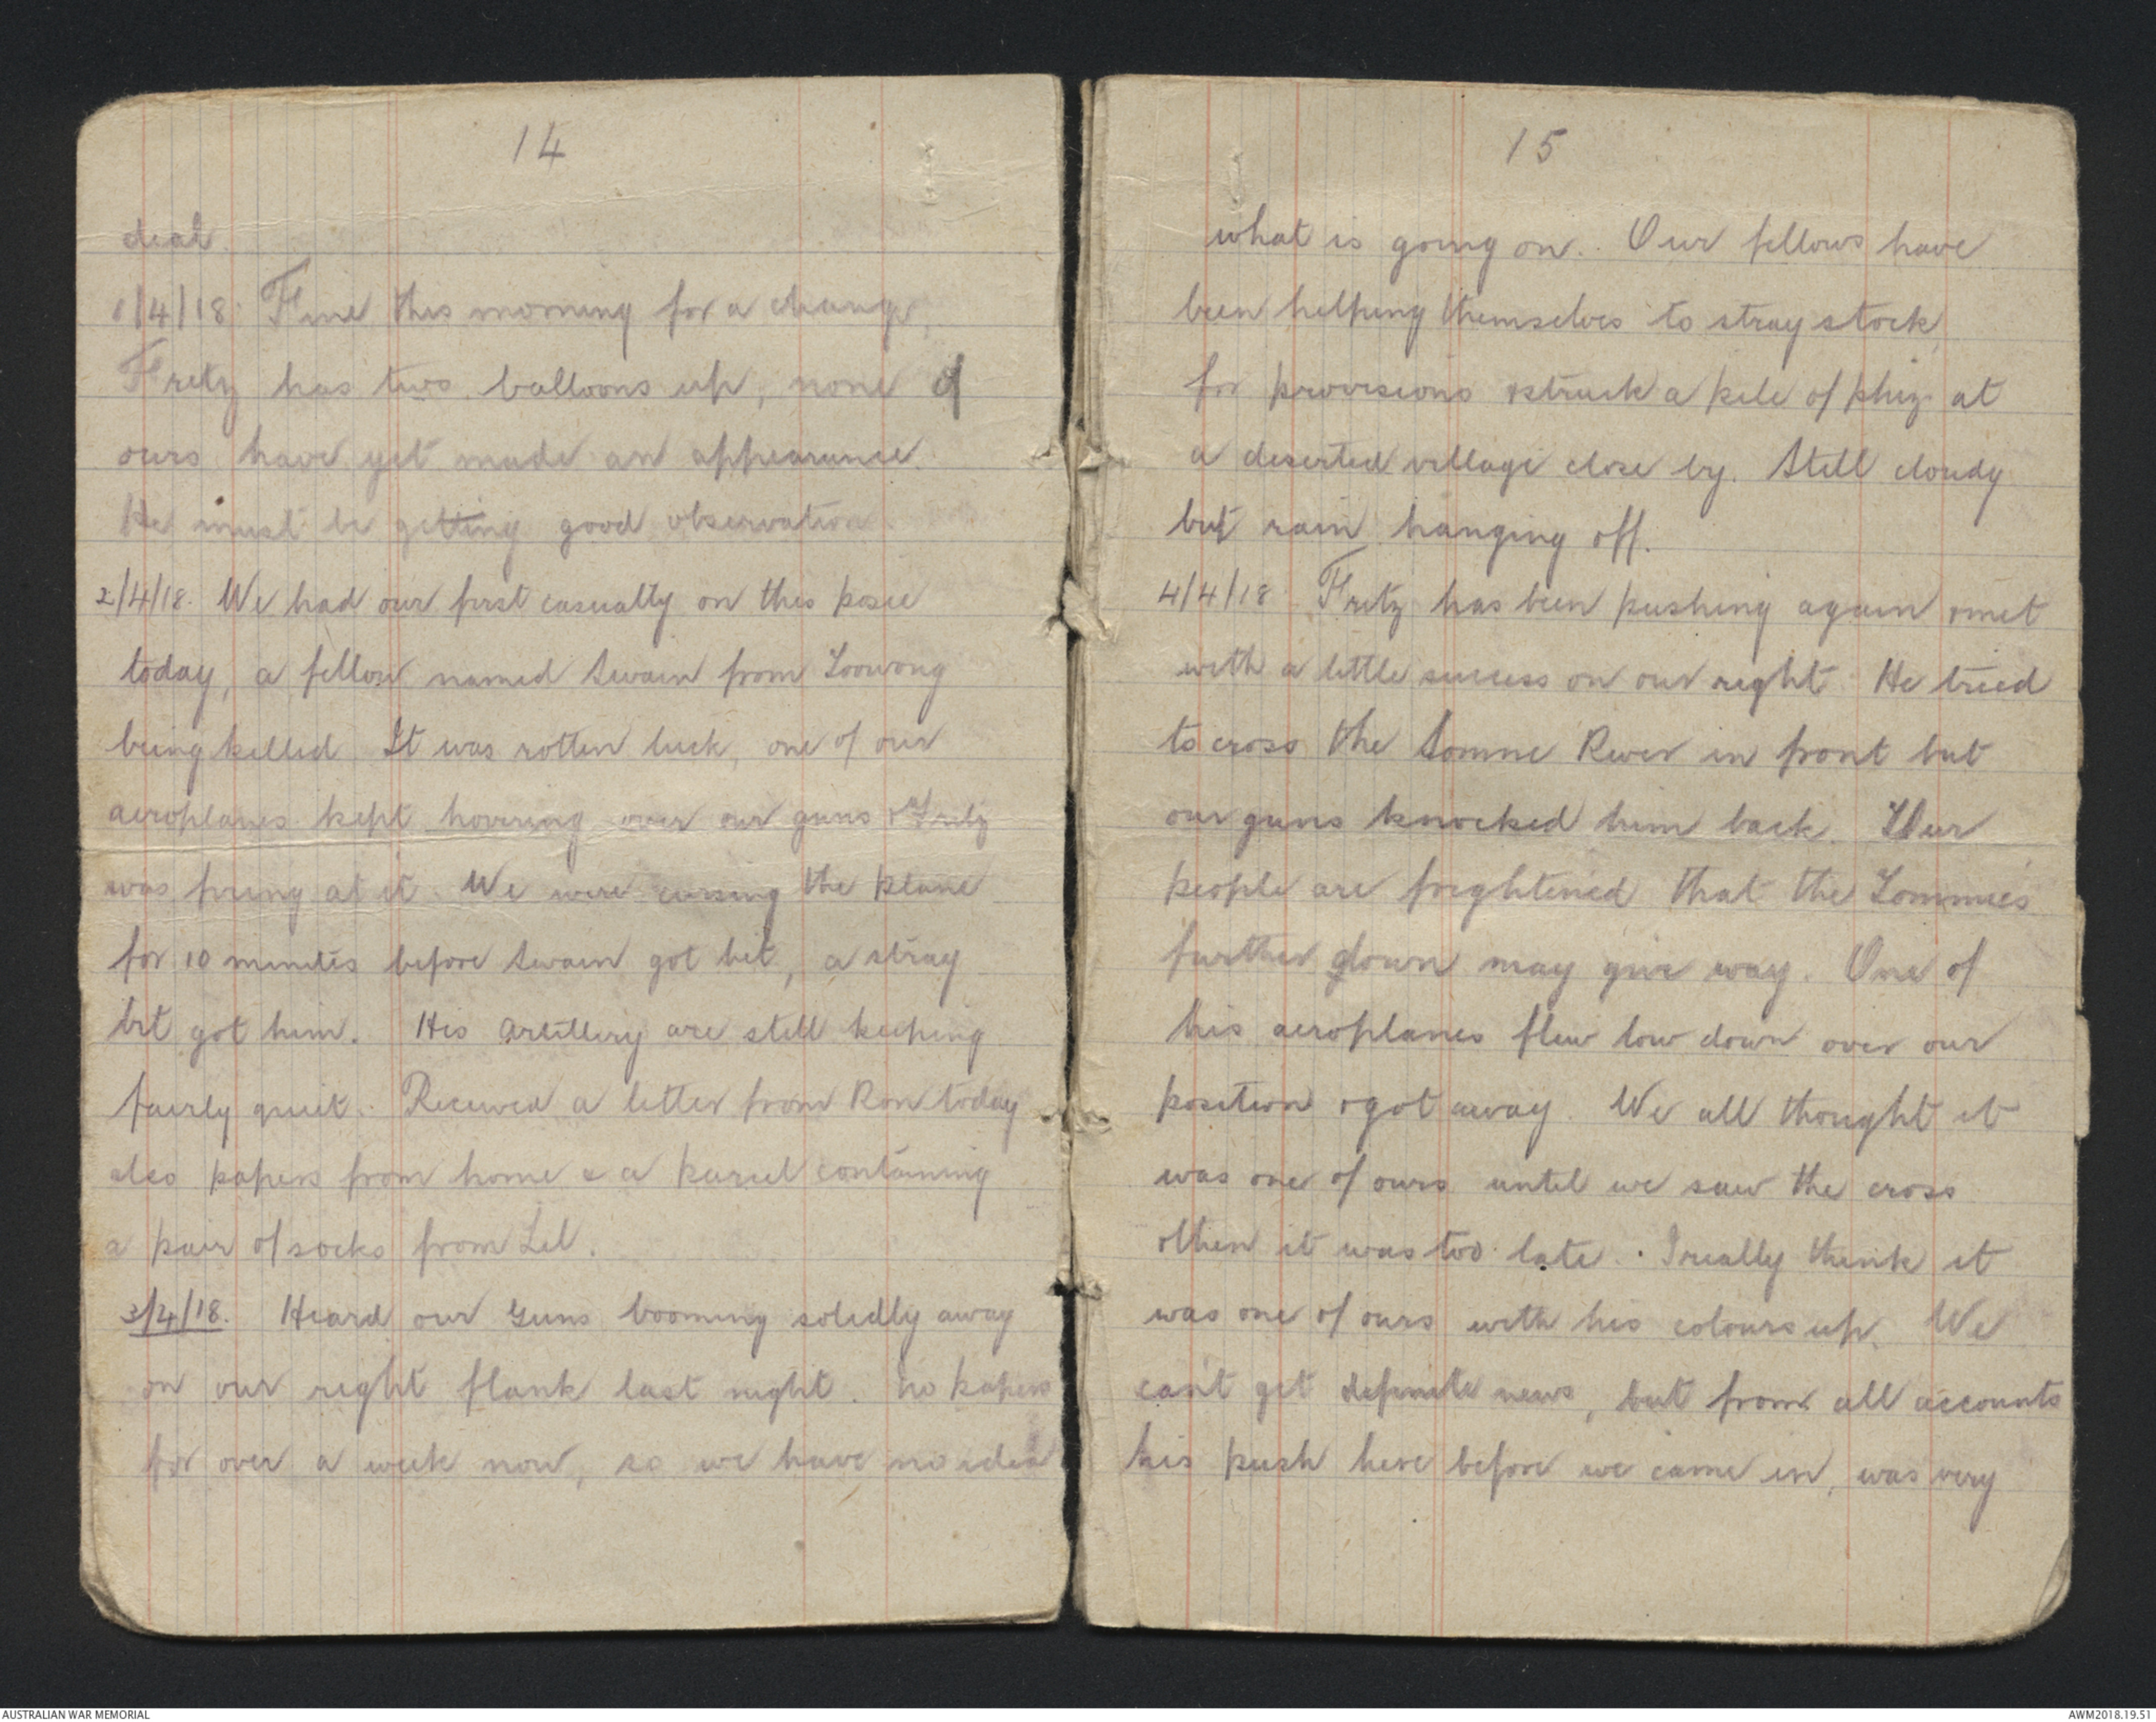 14
deal.
1/4/18. Fine this morning for a change,
Fritz has two balloons up, none of
ours have yet made an appearance.
He must be getting good observation.
2/4/18. We had our first casualty on this posie
today, a fellow named Swain from Toowong
being killed. It was rotten luck, one of our
aeroplanes kept hovering over our guns & Fritz
was firing at it. We were cursing the plane
for 10 minutes before Swain got hit, a stray
bit got him. His artillery are still keeping
fairly quiet. Received a letter from Ron today
also papers from home & a parcel containing
a pair of socks from Lil.
3/4/18. Heard our guns booming solidly away
on our right flank last night. No papers
for over a week now, so we have no idea
15
what is going on. Our fellows have
been helping themselves to stray stock
for provisions & struck a pile of phiz at
a deserted village close by. Still cloudy
but rain hanging off.
4/4/18 Fritz has been pushing again & met
with a little success on our right. He tried
to cross the Somme River in front but
our guns knocked him back. Our
people are frightened that the Tommies
further down may give way. One of
his aeroplanes flew low down over our
position & got away. We all thought it
was one of ours until we saw the cross
& then it was too late. I really think it
was one of ours with his colours up. We
can't get definite news, but from all accounts
his push here before we came in, was very
AUSTRALIAN WAR MEMORIAL
AWM2018.19.51